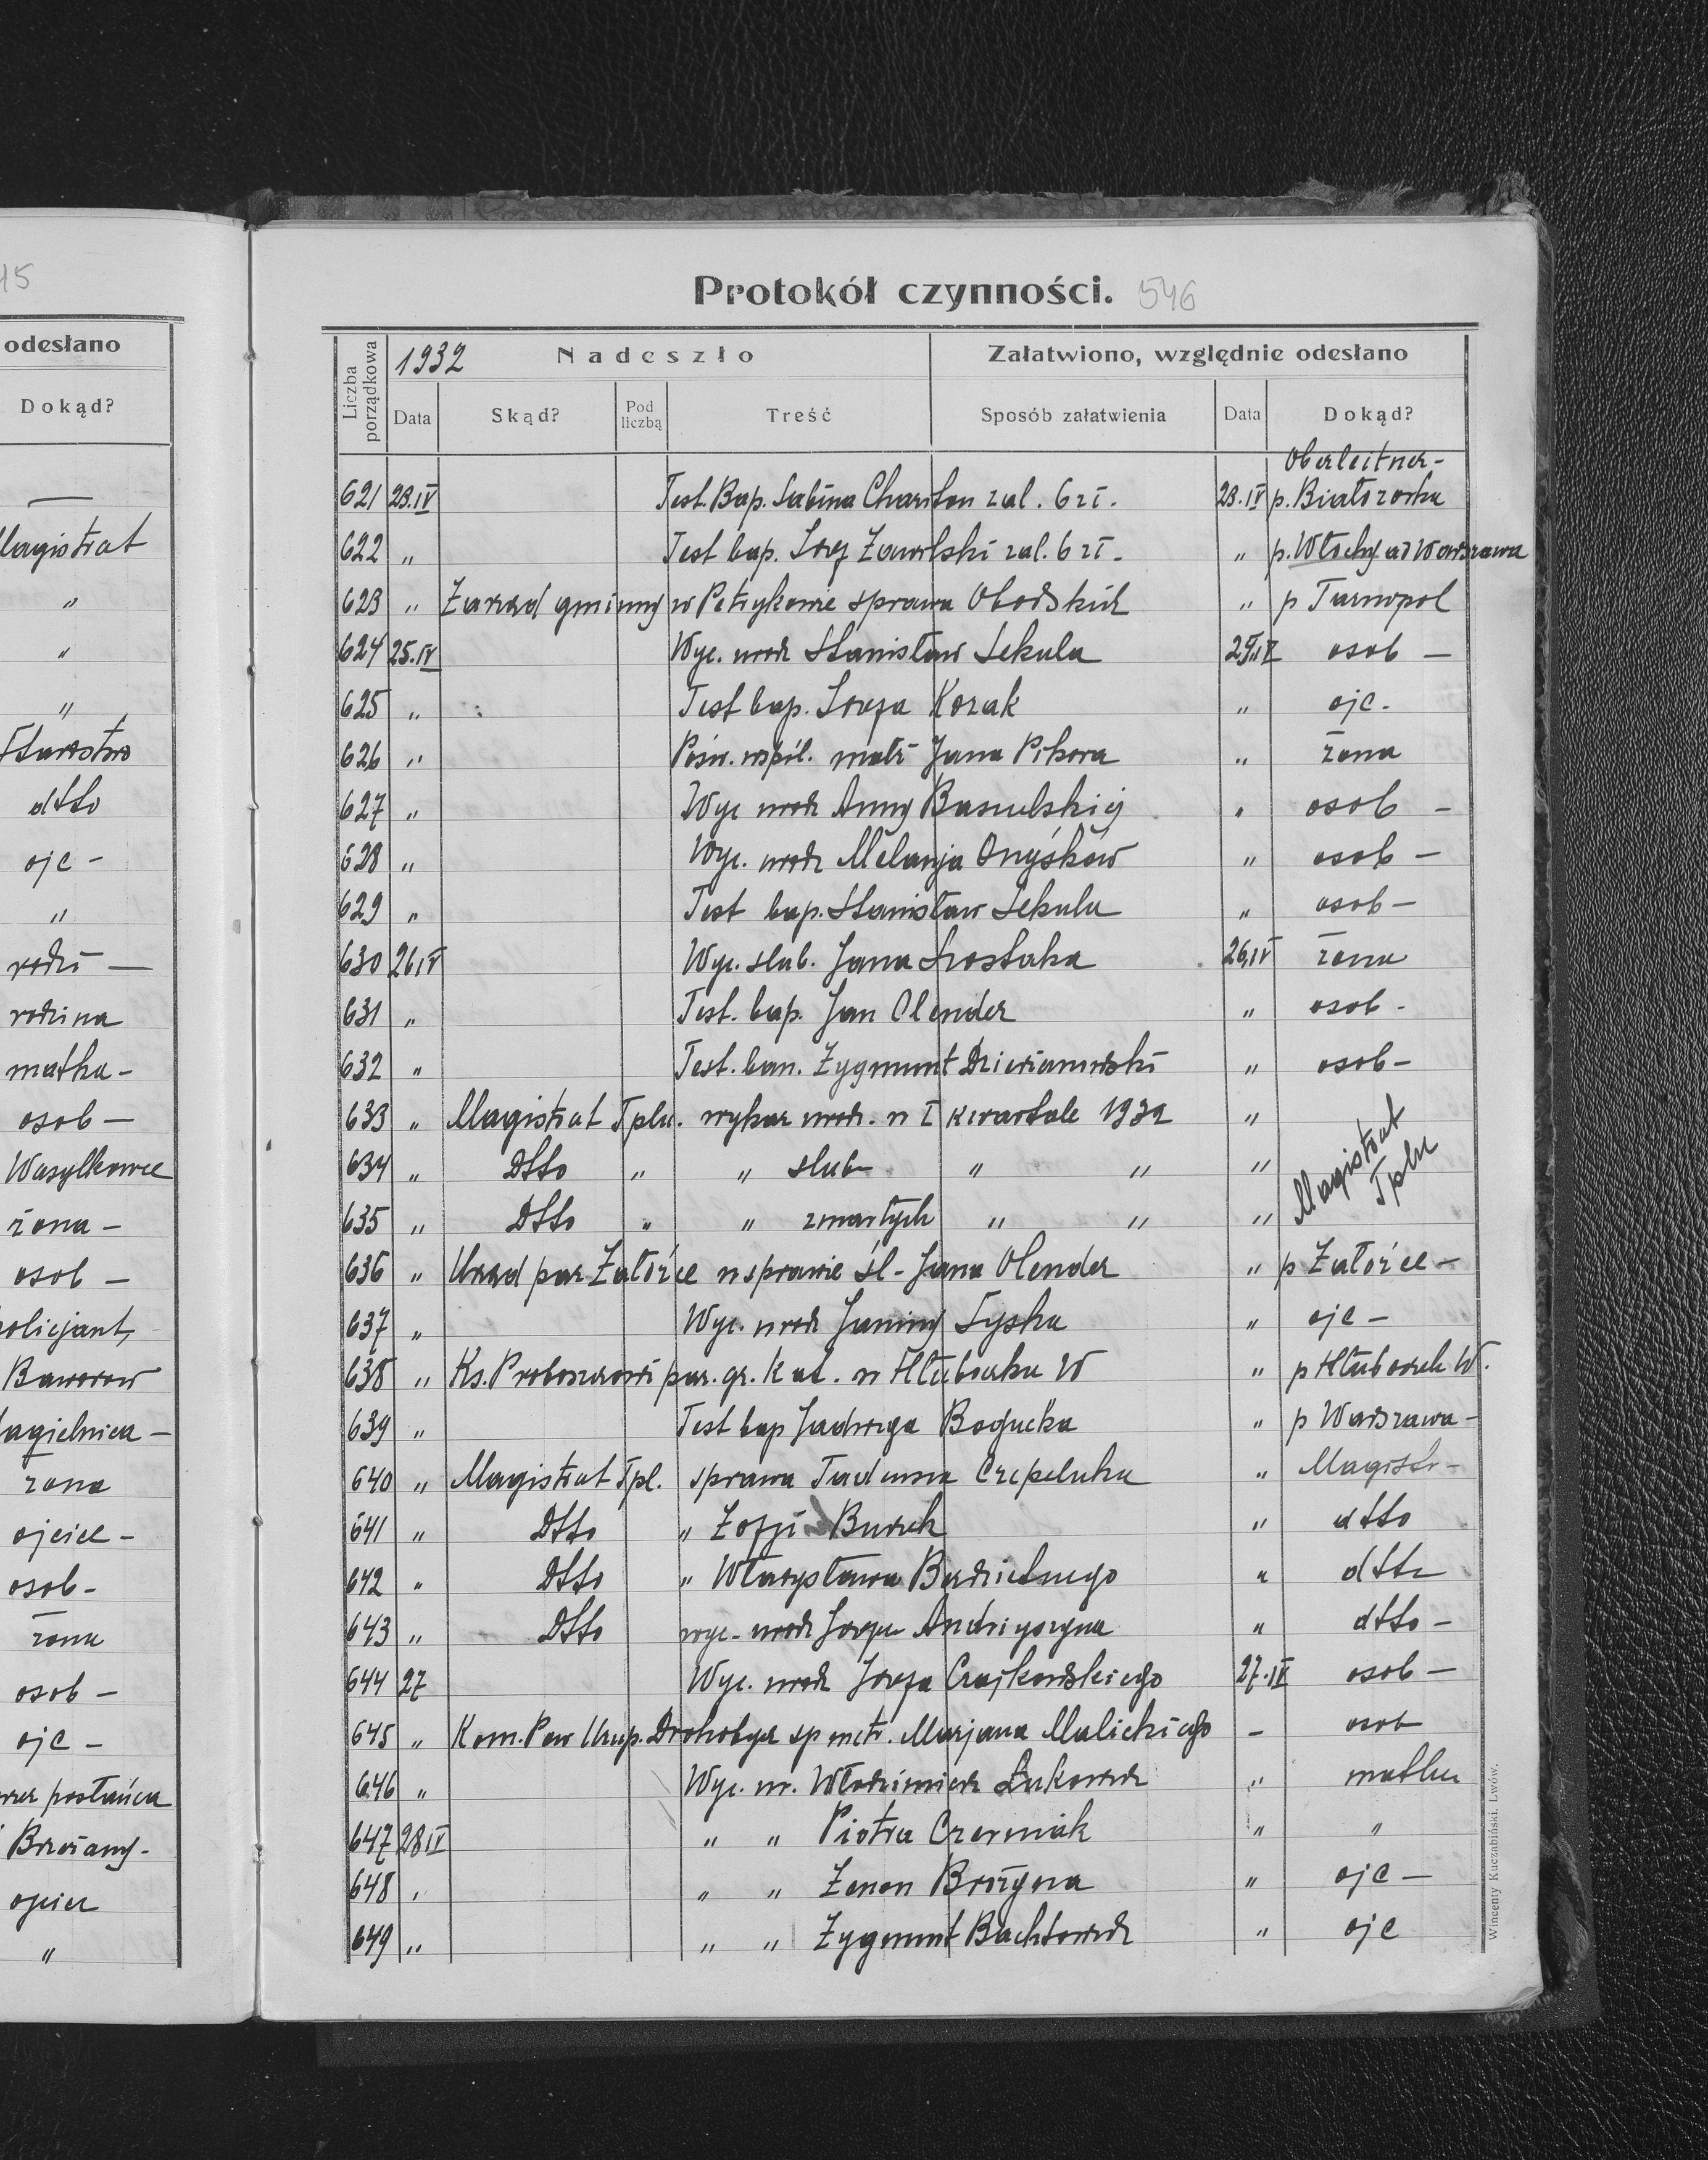 15
odesłano
Dokąd?
Magistrat
"
"
"
Starostwo
dtto
ojc -
"
rodzi —
rodzina
matka -
osob —
Wasylkowce
żona -
osob —
policjant,
Baworow
Jagielnica -
żona
ojciec -
osob -
żona
osob -
ojc -
posłańca
Brzeżany -
ojciec
"
Protokół czynności. 546
Liczba porządkowa 1932 Nadeszło Załatwiono, względnie odesłano
Data Skąd? Pod liczbą Treść Sposób załatwienia Data Dokąd?
Oberleitner -
621 23.IV Test. Bap. Sabina Chariton zal. 6 zł. 23.IV p. Białozorka
622 " Test bap. Józef Zawilski zal. 6 zł - " p. Włochy ad Warszawa
623 " Zarząd gminny w Petrykowie sprawa Obodskich " p Tarnopol
624 25.IV Wyc. urodz Stanisław Sekula 25.IV osob —
625 " Test bap. Józefa Kozak " ojc.
626 " Pośw. wspól. małż Jana Pikora " żona
627 " Wyc urodz Anny " osob -
628 " Wyc. urodz Melanja Onyśków " osob —
629 " Test bap. Stanisław Sekula " osob -
630 26.IV Wyc. slub. Jana Szostaka 26.IV żona
631 " Test. bap. Jan Olender " osob -
632 " Test. ban. Zygmunt " osob -
633 " Magistrat Tplu. wykaz urodz. w I kwartale 1932 "
634 " Dtto " " slub " " "
635 " Dtto " " zmarłych " " " Magistrat Tplu
636 " Urząd par Załoźce w sprawie śl - Jana Olender " p Załoźce -
637 " Wyc. urodz Janiny Łyska " ojc -
638 " Ks. Proboszczowi par. gr. kat. w Hłuboczku W " p Hłuboczek W.
639 " Test bap Jadwiga Bogucka " p Warszawa -
640 " Magistrat Tpl. sprawa Tadeusza Czepeluka " Magistr -
641 " Dtto " Zofji Burek " dtto
642 " Dtto " Władysława " dtto
643 " Dtto wyc - urodz Józefa " dtto -
644 27 Wyc. urodz Józefa Czajkowskiego 27.IV osob —
645 " Kom. Pow Uzup. Drohobycz sp metr. Marjana Malickiego - osob
646 " Wyc. ur. Włodzimierz " matka
647 28 IV " " Piotra Czerniak " "
648 " " " Zenon " ojc —
649 " " " Zygmunt Bachtowicz " ojc
Wincenty Kuczabiński, Lwów.